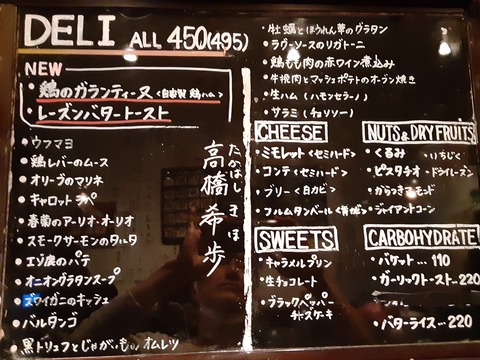 DELI ALL 450(495)
NEW
・鶏のガランティーヌ <自家製 鶏ハム>
・レーズンバタートースト
・ウフマヨ
・鶏レバーのムース
・オリーブのマリネ
・キャロットラペ
・春菊のアーリオ・オーリオ
・スモークサーモンのタルタル
・エゾ鹿のパテ
・オニオングラタンスープ
・ズワイガニのキッシュ
・バルダンゴ
・黒トリュフとじゃがいもの オムレツ
たかはし きほ
高橋 希歩
・牡蠣とほうれん草のグラタン
・ラグーソースのリガトーニ
・鶏もも肉の赤ワイン煮込み
・牛挽肉とマッシュポテトのオーブン焼き
・生ハム(ハモンセラーノ)
・サラミ(チョリソー)
CHEESE
・ミモレット <セミハード>
・コンテ <セミハード>
・ブリー <白カビ>
・フルムダンベール <青カビ>
NUTS&DRYFRUITS
・くるみ ・いちじく
・ピスタチオ ・ドライレーズン
・からつきアーモンド
・ジャイアントコーン
SWEETS
・キャラメルプリン
・生チョコレート
・ブラックペッパー
チーズケーキ
CARBOHYDRATE
・バケット… 110
・ガーリックトースト…220
・バターライス…220